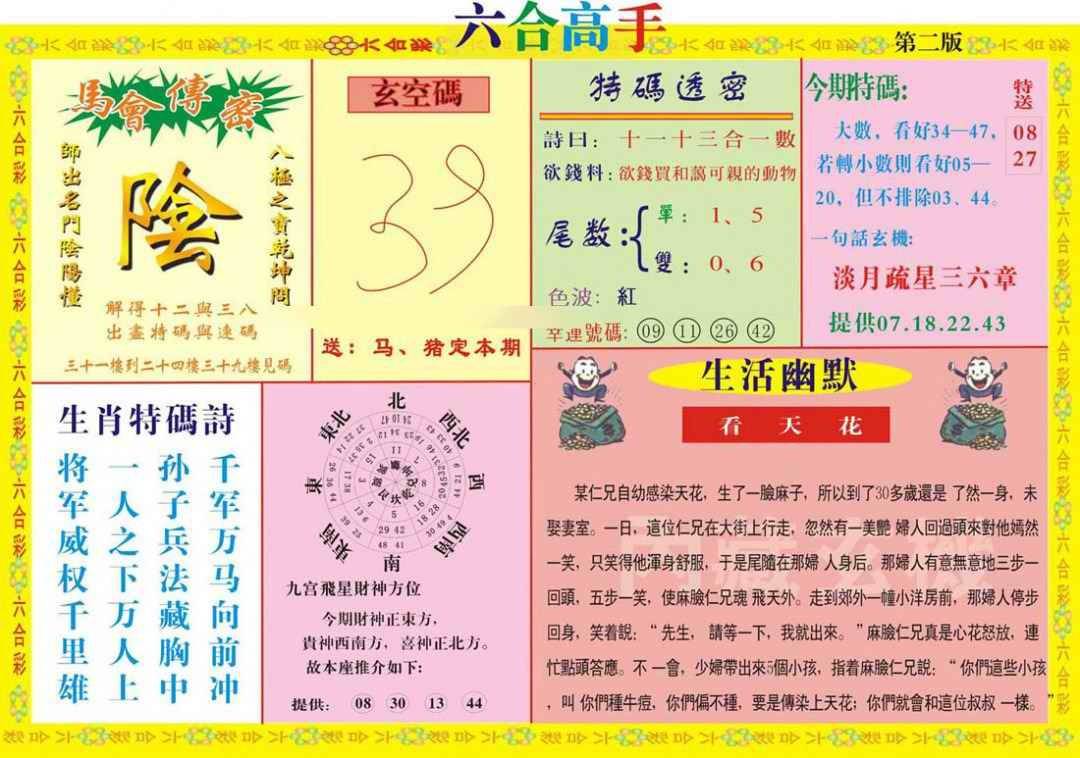 六合高手
第二版
六合彩
馬會傳密
師出名門陰陽懂
陰
八極之實乾坤問
解得十二與三八
出盡特碼與連碼
三十一樓到二十四樓三十九樓見碼
玄空碼
39
送：马、猪定本期
特碼透密
詩曰：十一十三合一數
欲錢料：欲錢買和藹可親的動物
尾数：
單：1、5
雙：0、6
色波：紅
幸運號碼：09 11 26 42
今期特碼:
特送
08
27
大數，看好34—47，
若轉小數則看好05—
20，但不排除03、44。
一句話玄機:
淡月疏星三六章
提供07.18.22.43
生肖特碼詩
千军万马向前冲
孙子兵法藏胸中
一人之下万人上
将军威权千里雄
北
西北
西
西南
南
東南
東
東北
九宫飛星財神方位
今期財神正東方，
貴神西南方，喜神正北方。
故本座推介如下:
提供: 08 30 13 44
生活幽默
看天花
某仁兄自幼感染天花，生了一臉麻子，所以到了30多歲還是 了然一身，未
娶妻室。一日，這位仁兄在大街上行走，忽然有一美艷 婦人回過頭來對他嫣然
一笑，只笑得他渾身舒服，于是尾隨在那婦 人身后。那婦人有意無意地三步一
回頭，五步一笑，使麻臉仁兄魂 飛天外。走到郊外一幢小洋房前，那婦人停步
回身，笑着說：“先生，請等一下，我就出來。”麻臉仁兄真是心花怒放，連
忙點頭答應。不 一會，少婦帶出來5個小孩，指着麻臉仁兄說：“你們這些小孩
，叫 你們種牛痘，你們偏不種，要是傳染上天花；你們就會和這位叔叔 一樣。”